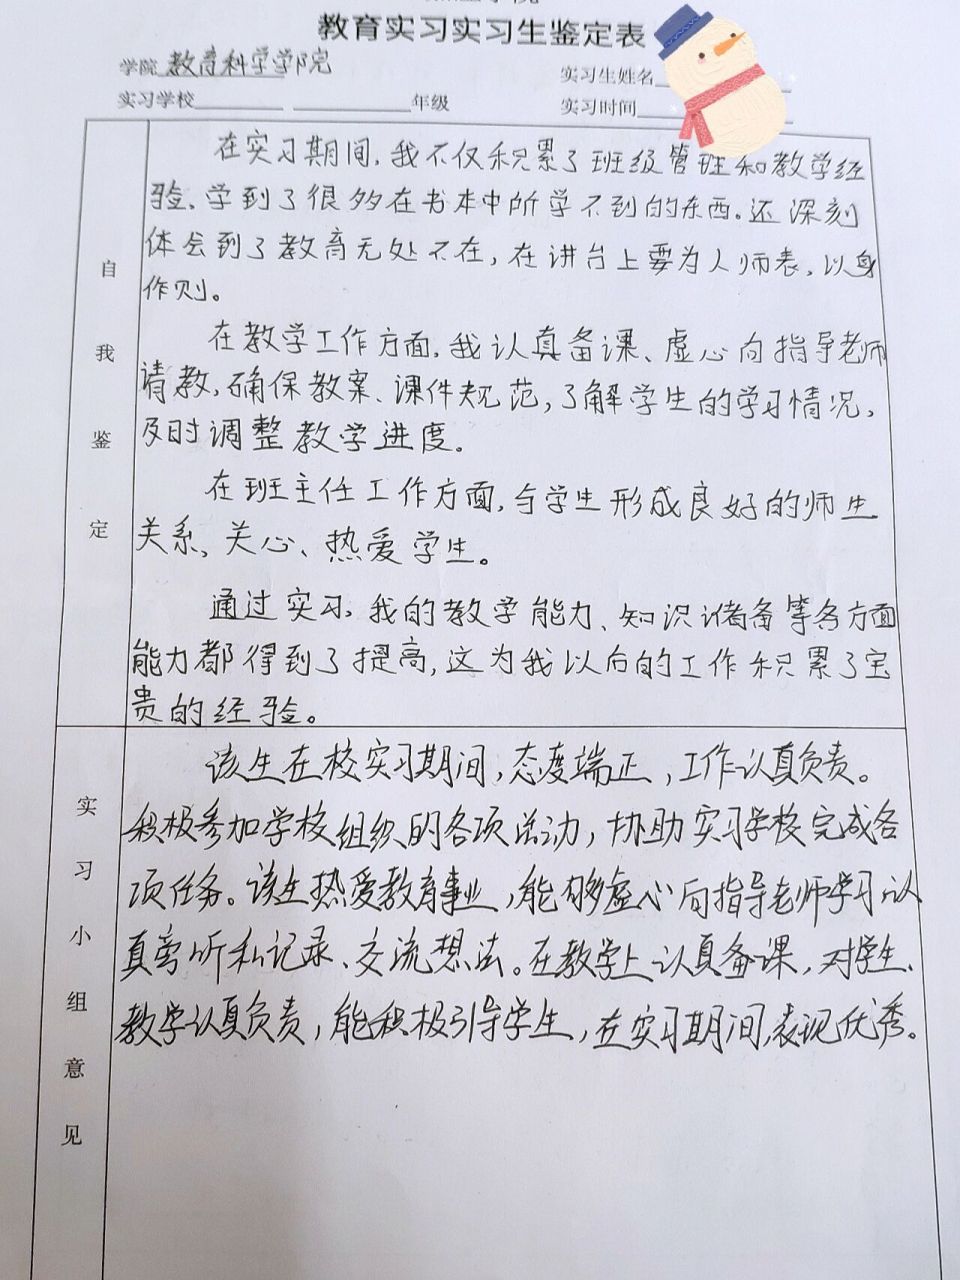 教育实习实习生鉴定表
学院 教育科学学院 实习生姓名
实习学校 年级 实习时间
自我鉴定
在实习期间,我不仅积累了班级管理和教学经
验、学到了很多在书本中所学不到的东西。还深刻
体会到了教育无处不在,在讲台上要为人师表,以身
作则。
在教学工作方面,我认真备课、虚心向指导老师
请教,确保教案、课件规范,了解学生的学习情况,
及时调整教学进度。
在班主任工作方面,与学生形成良好的师生
关系、关心、热爱学生。
通过实习,我的教学能力、知识储备等各方面
能力都得到了提高,这为我以后的工作积累了宝
贵的经验。
实习小组意见
该生在校实习期间,态度端正,工作认真负责。
积极参加学校组织的各项活动,协助实习学校完成各
项任务。该生热爱教育事业,能够虚心向指导老师学习认
真旁听和记录、交流想法。在教学上认真备课,对学生、
教学认真负责,能积极引导学生,在实习期间,表现优秀。